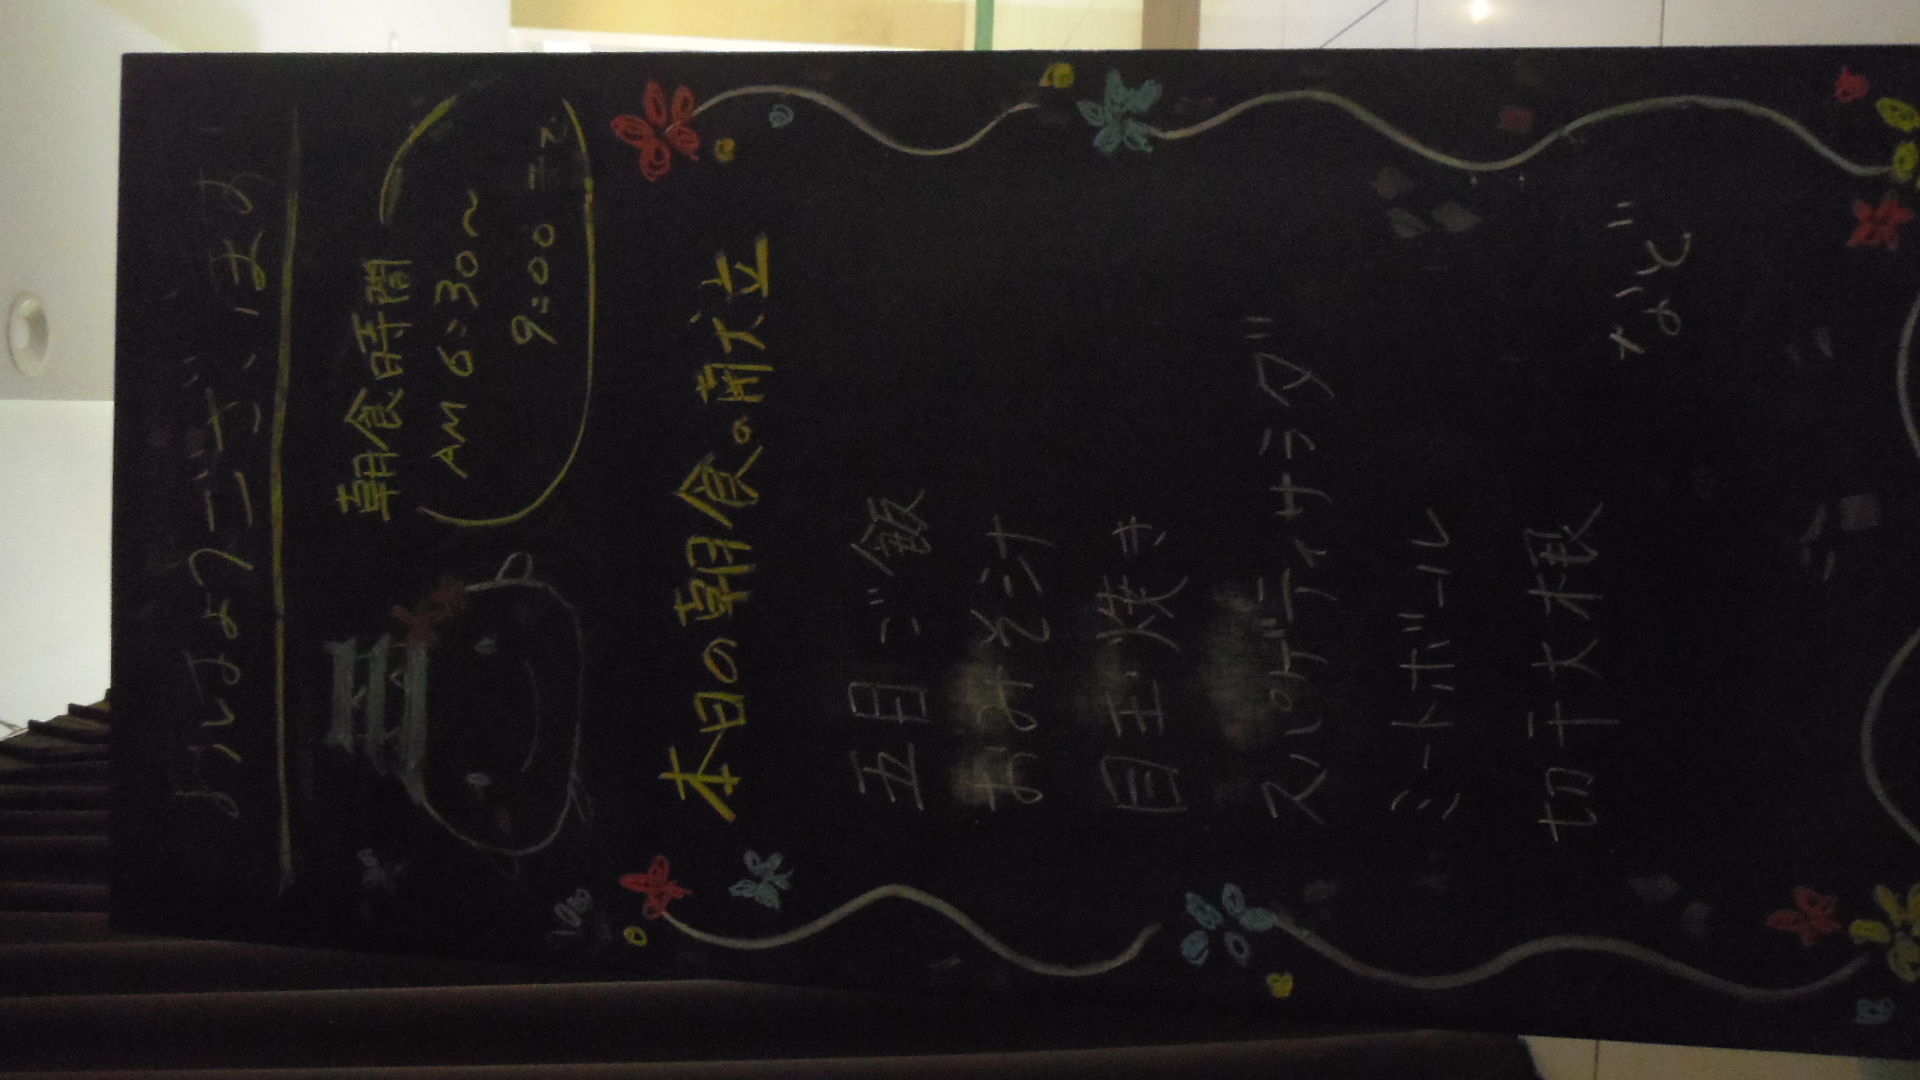 おはようございます
朝食時間
AM 6:30～
9:00
本日の朝食の献立
五目ご飯
おみそ汁
目玉焼き
スパゲティサラダ
ミートボール
切干大根
など